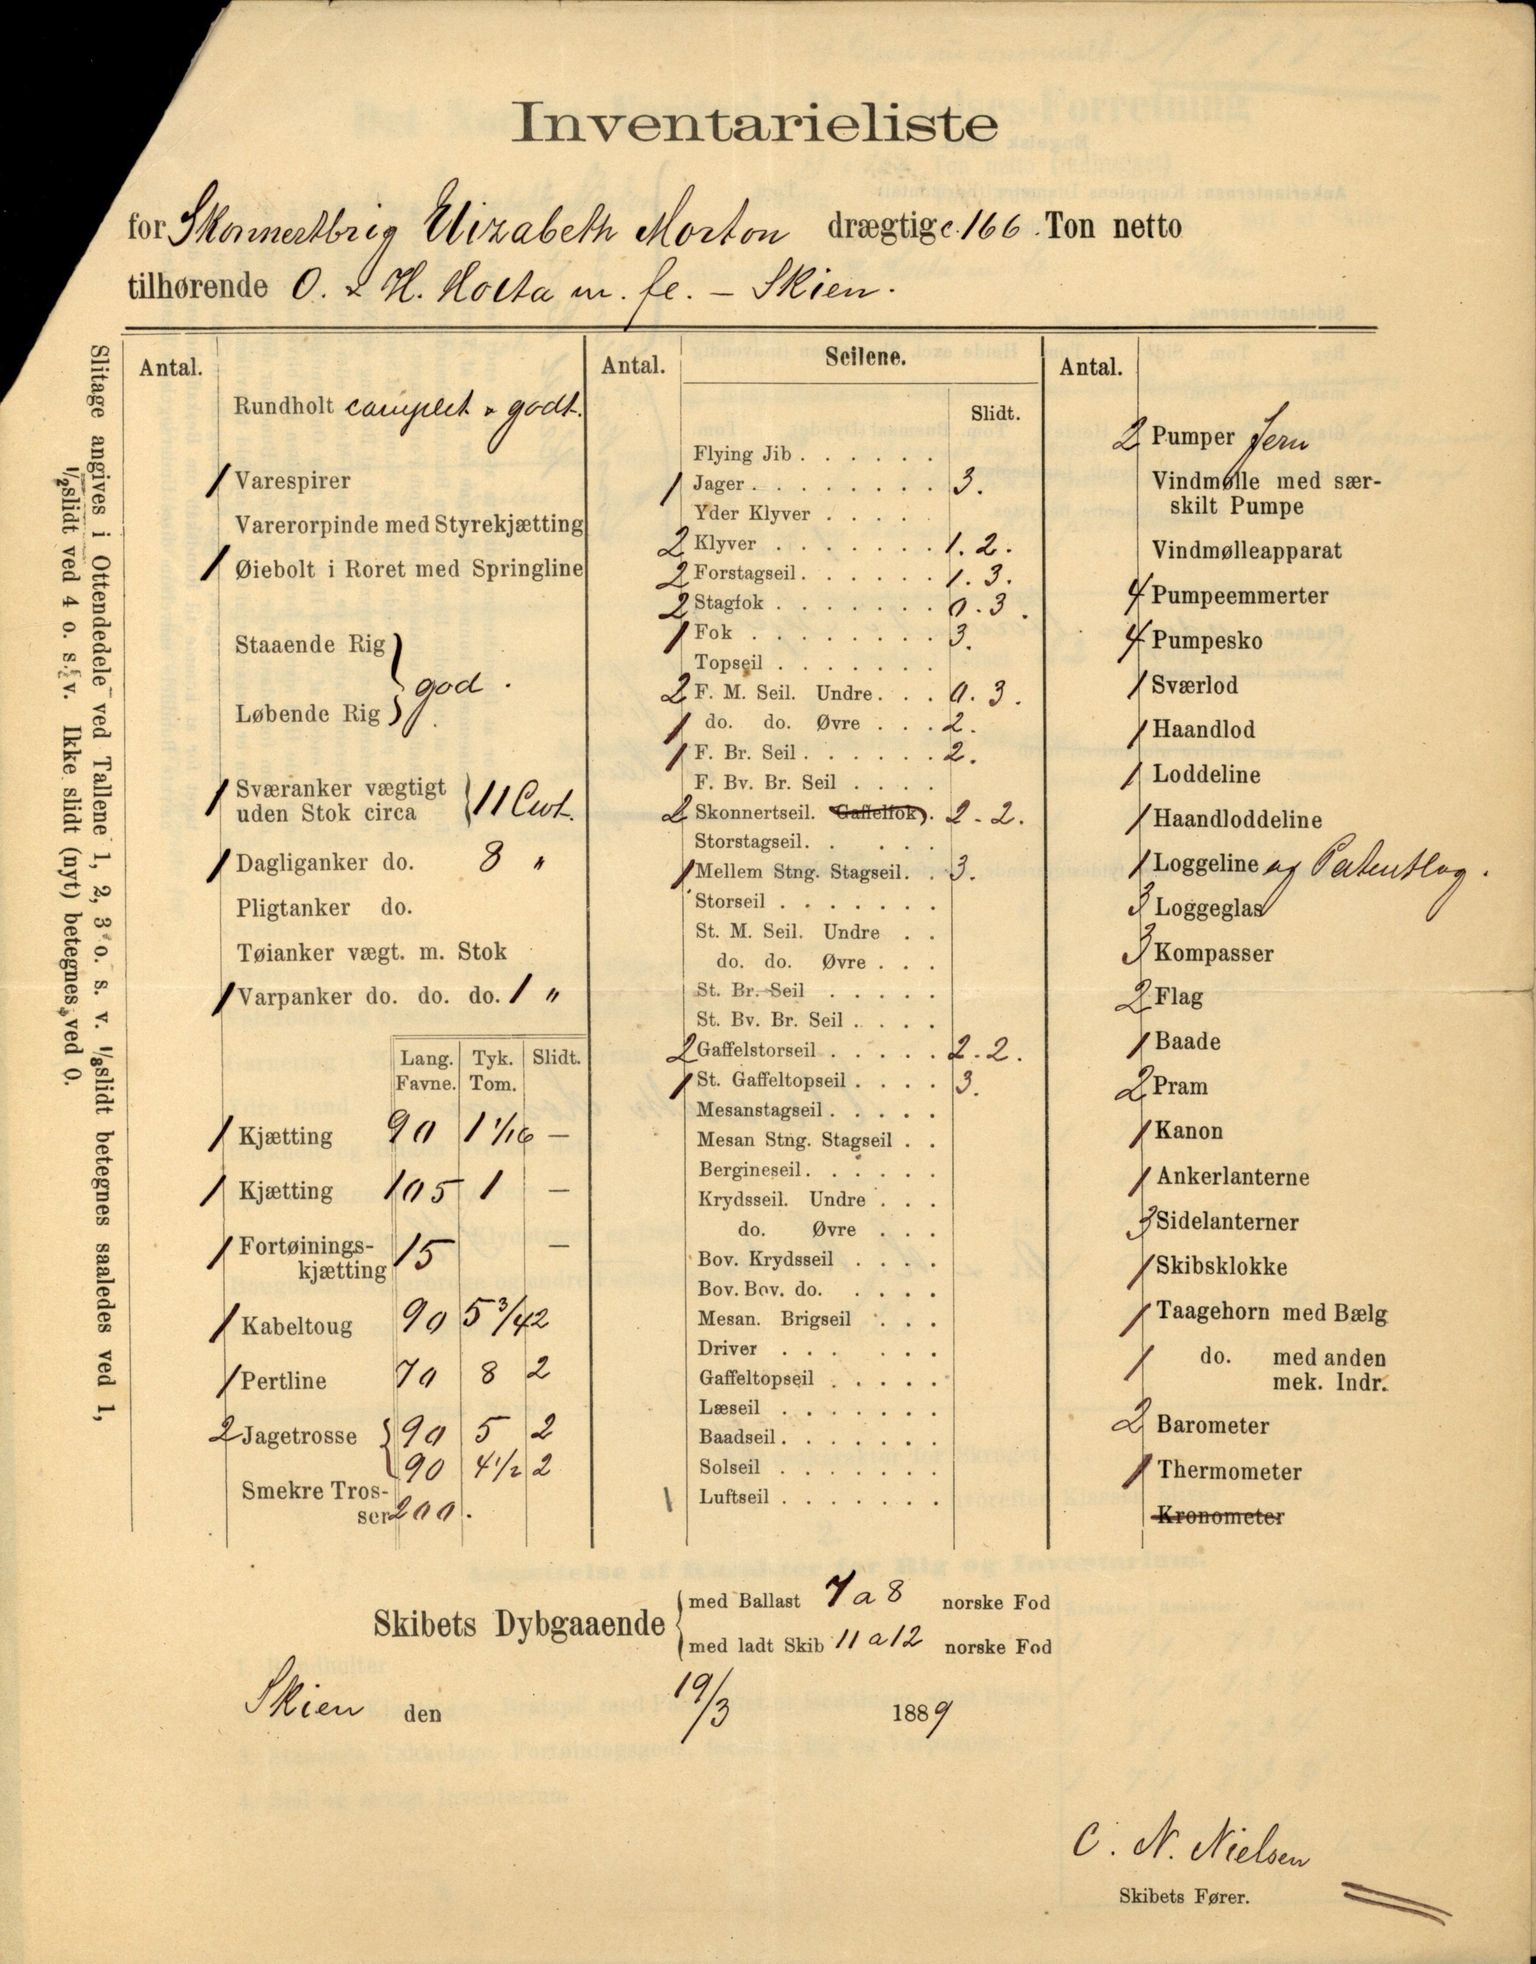 Inventarieliste
for Skonnertbrig Elizabeth Morton drægtig c. 166. Ton netto
tilhørende O. & H. Holta m. fl. – Skien.
Slitage angives i Ottendedele ved Tallene 1, 2, 3 o. s. v. 1/8 slidt betegnes saaledes ved 1,
1/2 slidt ved 4 o. s. v. Ikke slidt (nyt) betegnes ved 0.
Antal.
Rundholt complet & godt.
1 Varespirer
Varerorpinde med Styrekjætting
1 Øiebolt i Roret med Springline
Staaende Rig
god.
Løbende Rig
1 Sværanker vægtigt
uden Stok circa 11 Cwt.
1 Dagliganker do. 8 "
Pligtanker do.
Tøianker vægt. m. Stok
1 Varpanker do. do. do. 1 "
Lang. Tyk. Slidt.
Favne. Tom.
1 Kjætting 90 1 1/16 –
1 Kjætting 105 1 –
1 Fortøinings-
kjætting 15 –
1 Kabeltoug 90 5 3/4 2
1 Pertline 70 8 2
2 Jagetrosse 90 5 2
90 4 1/2 2
Smekre Tros-
ser 200.
Antal. Seilene.
Slidt.
Flying Jib . . . . . .
1 Jager . . . . . . . . 3.
Yder Klyver . . . .
2 Klyver . . . . . . . 1. 2.
2 Forstagseil . . . . . . 1. 3.
2 Stagfok . . . . . . . 0. 3.
1 Fok . . . . . . . . 3.
Topseil . . . . . . .
2 F. M. Seil. Undre . . . 0. 3.
1 do. do. Øvre . . . 2.
1 F. Br. Seil . . . . . . 2.
F. Bv. Br. Seil . . . .
2 Skonnertseil. Gaffelfok) . 2 - 2.
Storstagseil . . . . .
1 Mellem Stng. Stagseil . . 3.
Storseil . . . . . . .
St. M. Seil. Undre . .
do. do. Øvre . . .
St. Br. Seil . . . . .
St. Bv. Br. Seil . . . .
2 Gaffelstorseil . . . . . 2 - 2.
1 St. Gaffeltopseil . . . . 3.
Mesanstagseil . . . . .
Mesan Stng. Stagseil . .
Bergineseil . . . . . .
Krydsseil. Undre . . .
do. Øvre . . .
Bov. Krydsseil . . . .
Bov. Bov. do. . . . .
Mesan. Brigseil . . .
Driver . . . . . .
Gaffeltopseil . . . . .
Læseil . . . . . . .
Baadseil . . . . . . .
Solseil . . . . . . .
1 Luftseil . . . . . . .
Antal.
2 Pumper Jern
Vindmølle med sær-
skilt Pumpe
Vindmølleapparat
4 Pumpeemmerter
4 Pumpesko
1 Sværlod
1 Haandlod
1 Loddeline
1 Haandloddeline
1 Loggeline og Patentlog.
3 Loggeglas
3 Kompasser
2 Flag
1 Baade
2 Pram
1 Kanon
1 Ankerlanterne
3 Sidelanterner
1 Skibsklokke
1 Taagehorn med Bælg
1 do. med anden
mek. Indr.
2 Barometer
1 Thermometer
Kronometer
Skibets Dybgaaende
med Ballast 7 a 8 norske Fod
med ladt Skib 11 a 12 norske Fod
Skien den 19/3 1889
C. N. Nielsen
Skibets Fører.